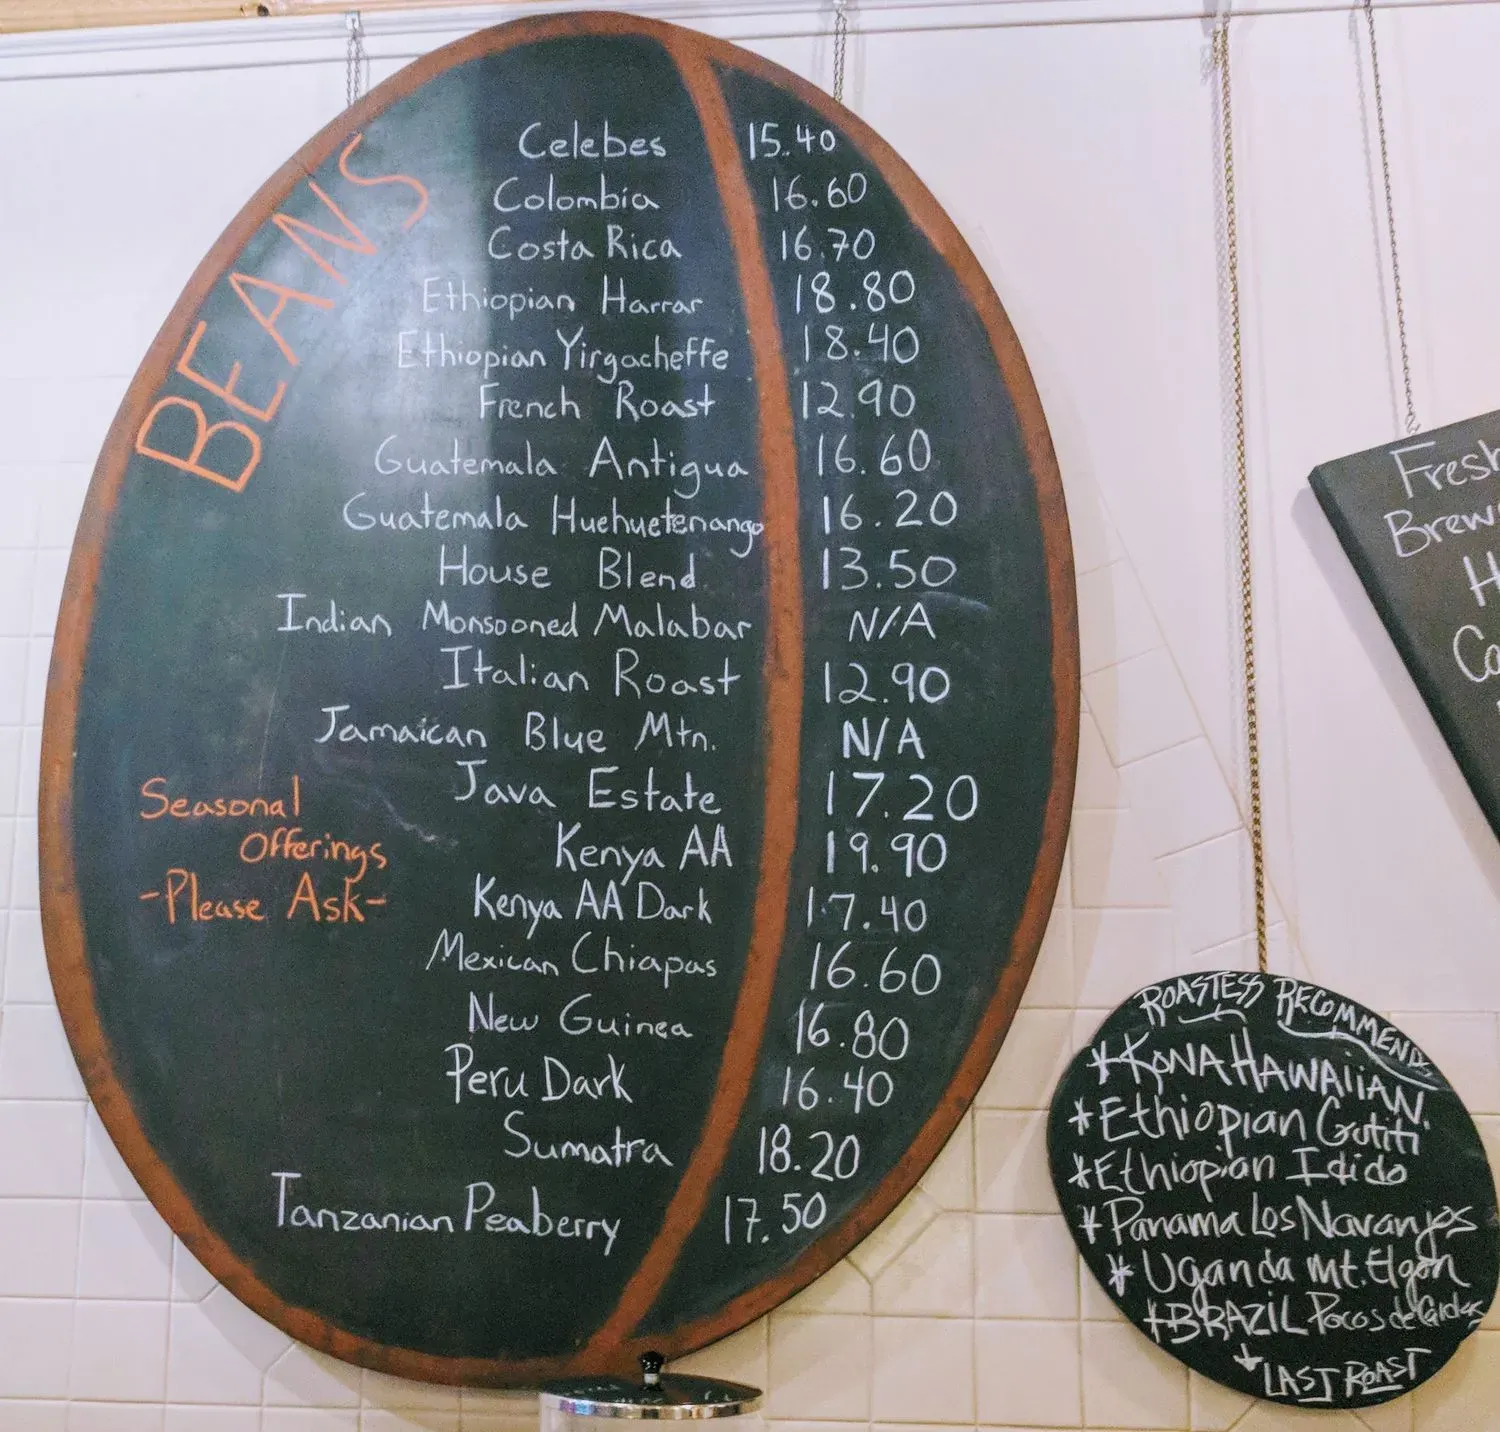 BEANS
Celebes 15.40
Colombia 16.60
Costa Rica 16.70
Ethiopian Harrar 18.80
Ethiopian Yirgacheffe 18.40
French Roast 12.90
Guatemala Antigua 16.60
Guatemala Huehuetenango 16.20
House Blend 13.50
Indian Monsooned Malabar N/A
Italian Roast 12.90
Jamaican Blue Mtn. N/A
Java Estate 17.20
Kenya AA 19.90
Kenya AA Dark 17.40
Mexican Chiapas 16.60
New Guinea 16.80
Peru Dark 16.40
Sumatra 18.20
Tanzanian Peaberry 17.50
Seasonal
Offerings
-Please Ask-
Fresh
ROASTESS RECOMMENDS
*KONA HAWAIIAN
*Ethiopian Gutiti
*Ethiopian Idido
*Panama Los Naranjos
*Uganda Mt. Elgon
*BRAZIL Pocos de Caldas
LAST ROAST